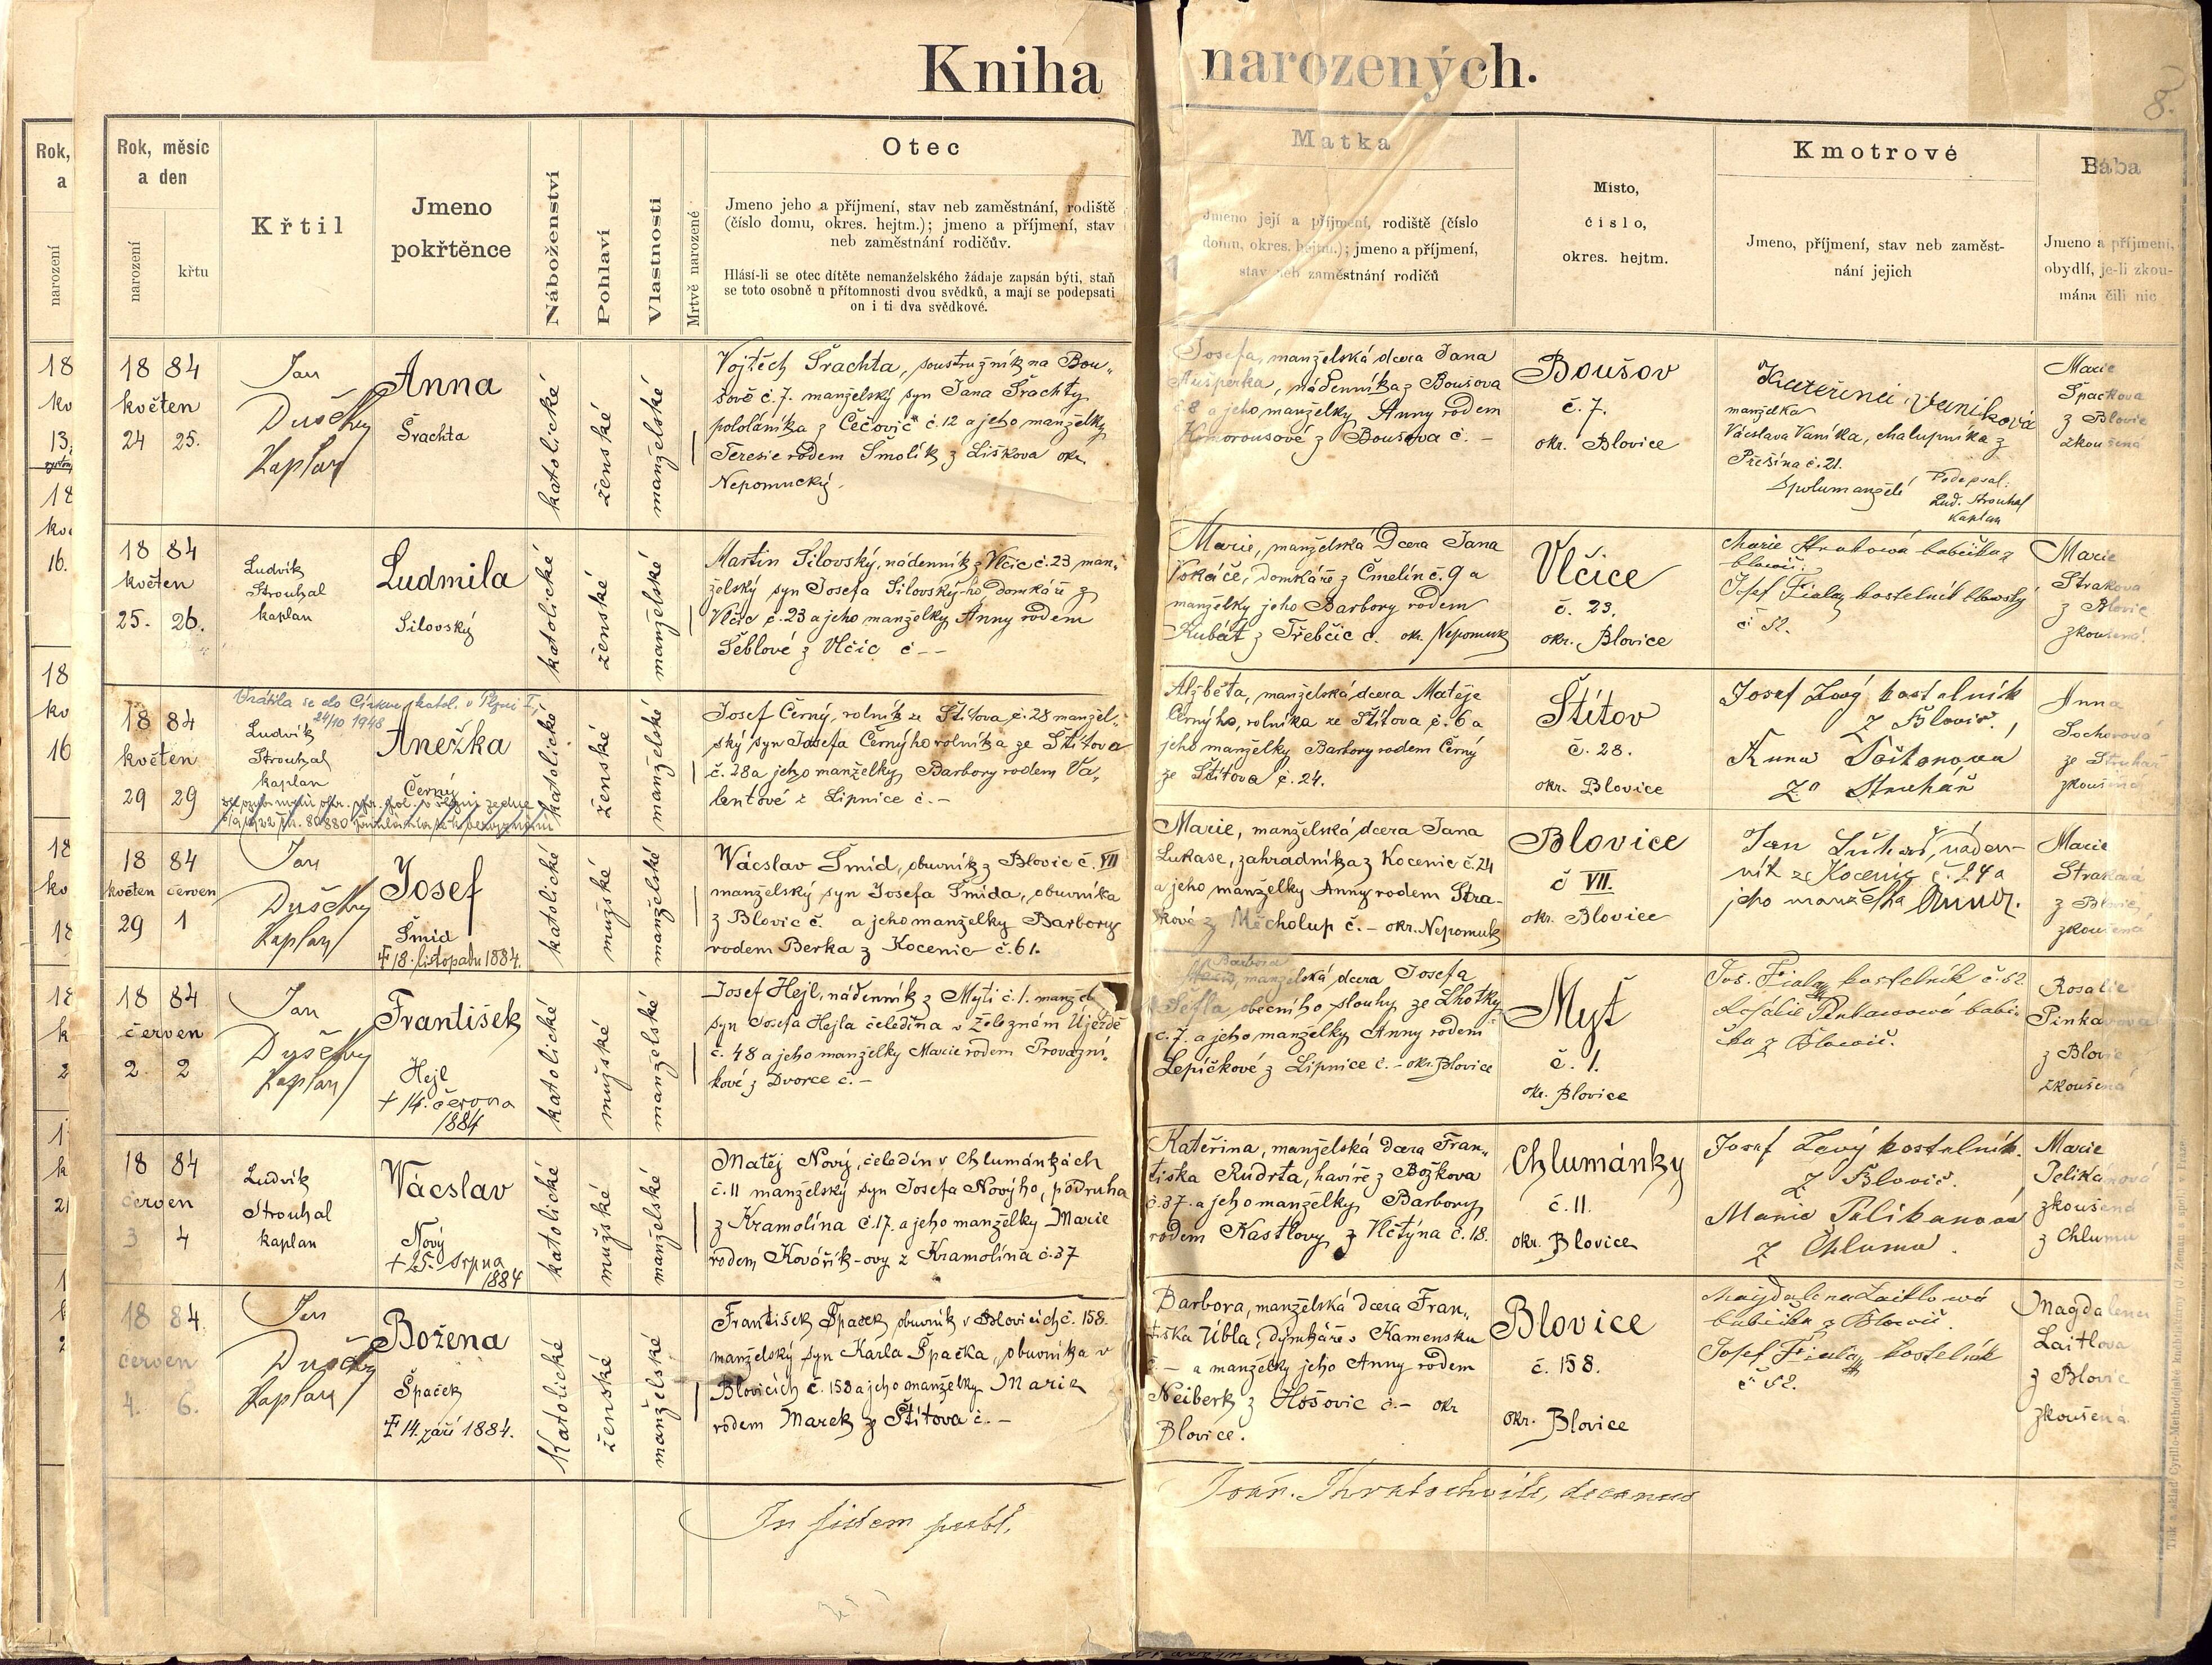 Kniha narozených.
8.
Rok, měsíc
a den
narození
křtu
Křtil
Jmeno
pokřtěnce
Náboženství
Pohlaví
Vlastnosti
Mrtvě narozené
Otec
Jmeno jeho a příjmení, stav neb zaměstnání, rodiště
(číslo domu, okres. hejtm.); jmeno a příjmení, stav
neb zaměstnání rodičův.
Hlásí-li se otec dítěte nemanželského žádaje zapsán býti, staň
se toto osobně u přítomnosti dvou svědků, a mají se podepsati
on i ti dva svědkové.
Matka
Jmeno její a příjmení, rodiště (číslo
domu, okres. hejtm.); jmeno a příjmení,
stav neb zaměstnání rodičů
Misto,
číslo,
okres. hejtm.
Kmotrové
Jmeno, příjmení, stav neb zaměst-
nání jejich
Bába
Jmeno a příjmení,
obydlí, je-li zkou-
mána čili nic
18 84
květen
24 25.
Jan
Dušek
Kaplan
Anna
Šrachta
katolické
ženské
manželské
Vojtěch Šrachta, soustružník na Bou-
šově č. 7. manželský syn Jana Šrachty
pololáníka z Čečovic č. 12 a jeho manželky
Teresie rodem Šmolík z Liškova okr.
Nepomucký.
Josefa, manželská dcera Jana
Aušperka, nádenníka z Boušova
č. 8 a jeho manželky Anny rodem
Komorousové z Boušova č. –
Boušov
č. 7.
okr. Blovice
Kateřina Vaníková
manželka
Václava Vaníka, chalupníka z
Přešína č. 21.
Spolumanželé
Podepsal:
Lud. Strouhal
Kaplan
Marie
Špačkova
z Blovic
zkoušená
18 84
květen
25. 26.
Ludvík
Strouhal
kaplan
Ludmila
Silovský
katolické
ženské
manželské
Martin Silovský, nádenník z Vlčic č. 23 man-
želský syn Josefa Silovský-ho, domkáře z
Vlčic č. 23 a jeho manželky Anny rodem
Šeblové z Vlčic č –
Marie, manželská Dcera Jana
Vokáče, domkáře z Čmelín č. 9 a
manželky jeho Barbory rodem
Kubát z Třebčic č. okr. Nepomuk
Vlčice
č. 23.
okr. Blovice
Marie Straková babička z
Blovic.
Josef Fiala, kostelník blovský
č 52.
Marie
Strakova
z Blovic
zkoušená
Vrátila se do Církve katol. v Plzni I,
24/10 1948
18 84
květen
29 29
Ludvík
Strouhal
kaplan
Anežka
Černý
katolické
ženské
manželské
Josef Černý, rolník ze Štítova č. 28 manžel-
ský syn Josefa Černýho rolníka ze Štítova
č. 28 a jeho manželky Barbory rodem Va-
lentové z Lipnice č. –
Alžběta, manželská dcera Matěje
Černýho, rolníka ze Štítova č. 6 a
jeho manželky Barbory rodem Černý
ze Štítova č. 24.
Štítov
č. 28.
okr. Blovice
Josef Levý kostelník
z Blovic.
Anna
ze Struhař
Anna
Sochorová
ze Struhař
zkoušená
18 84
květen červen
29 1
Jan
Dušek
Kaplan
Josef
Šmíd
† 18. listopadu 1884.
katolické
mužské
manželské
Wácslav Šmíd, obuvník z Blovic č. VII
manželský syn Josefa Šmída, obuvníka
z Blovic č. a jeho manželky Barbory
rodem Berka z Kocenic č. 61.
Marie, manželská dcera Jana
Lukase, zahradníka z Kocenic č. 24
a jeho manželky Anny rodem Stra-
kové z Měcholup č. – okr. Nepomuk
Blovice
č VII.
okr. Blovice
Jan Lukas, náden-
ník ze Kocenic č. 24 a
jeho manželka Anna.
Marie
Straková
z Blovic,
zkoušená
18 84
červen
2 2
Jan
Dušek
Kaplan
František
Hejl
† 14. června
1884
katolické
mužské
manželské
Josef Hejl, nádenník z Mýti č. 1. manžel.
syn Josefa Hejla čeledína v Železném Újezdě
č. 48 a jeho manželky Marie rodem Provazní-
kové z Dvorce č. –
Barbora
manželská dcera Josefa
Šeffla, obecního slouhy ze Lhotky
č. 7. a jeho manželky Anny rodem
Lepíčkové z Lipnice č. – okr. Blovice
Mýť
č. 1.
okr. Blovice
Jos. Fiala, kostelník č. 52
Rosalie Pinkasová babi-
čka z Blovic.
Rosalie
Pinka
z Blovic
zkoušená
18 84
červen
3 4
Ludvík
Strouhal
kaplan
Wácslav
Nový
† 25. srpna
1884
katolické
mužské
manželské
Matěj Nový, čeledín v Chlumánkách
č. 11 manželský syn Josefa Novýho, podruha
z Kramolína č. 17. a jeho manželky Marie
rodem Kovářík-ovy z Kramolína č. 37
Kateřina, manželská dcera Fran-
tiška Rudrta, havíře z Božkova
č. 37. a jeho manželky Barbory
rodem Kastlovy z Vlčtýna č. 18.
Chlumánky
č. 11.
okr. Blovice
Josef Levý kostelník.
z Blovic.
Marie Pelikanová
z Chlumu.
Marie
Pelikánová
zkoušená
z Chlumu
18 84
červen
4. 6.
Jan
Dušek
Kaplan
Božena
Špaček
† 14. září 1884.
Katolické
ženské
manželské
František Špaček, obuvník v Blovicích č. 158.
manželský syn Karla Špačka, obuvníka v
Blovicích č. 158 a jeho manželky Marie
rodem Marek z Štítova č. –
Barbora, manželská Dcera Fran-
tiška Úbla, dýmkáře v Kamensku
č – a manželky jeho Anny rodem
Neiberk z Hošovic č. – okr
Blovice.
Blovice
č. 158.
okr. Blovice
Magdalena Laitlová
babička z Blovic.
Josef Fiala, kostelník
č 52.
Magdalena
Laitlova
z Blovic
zkoušená
In fidem publ.
decanus